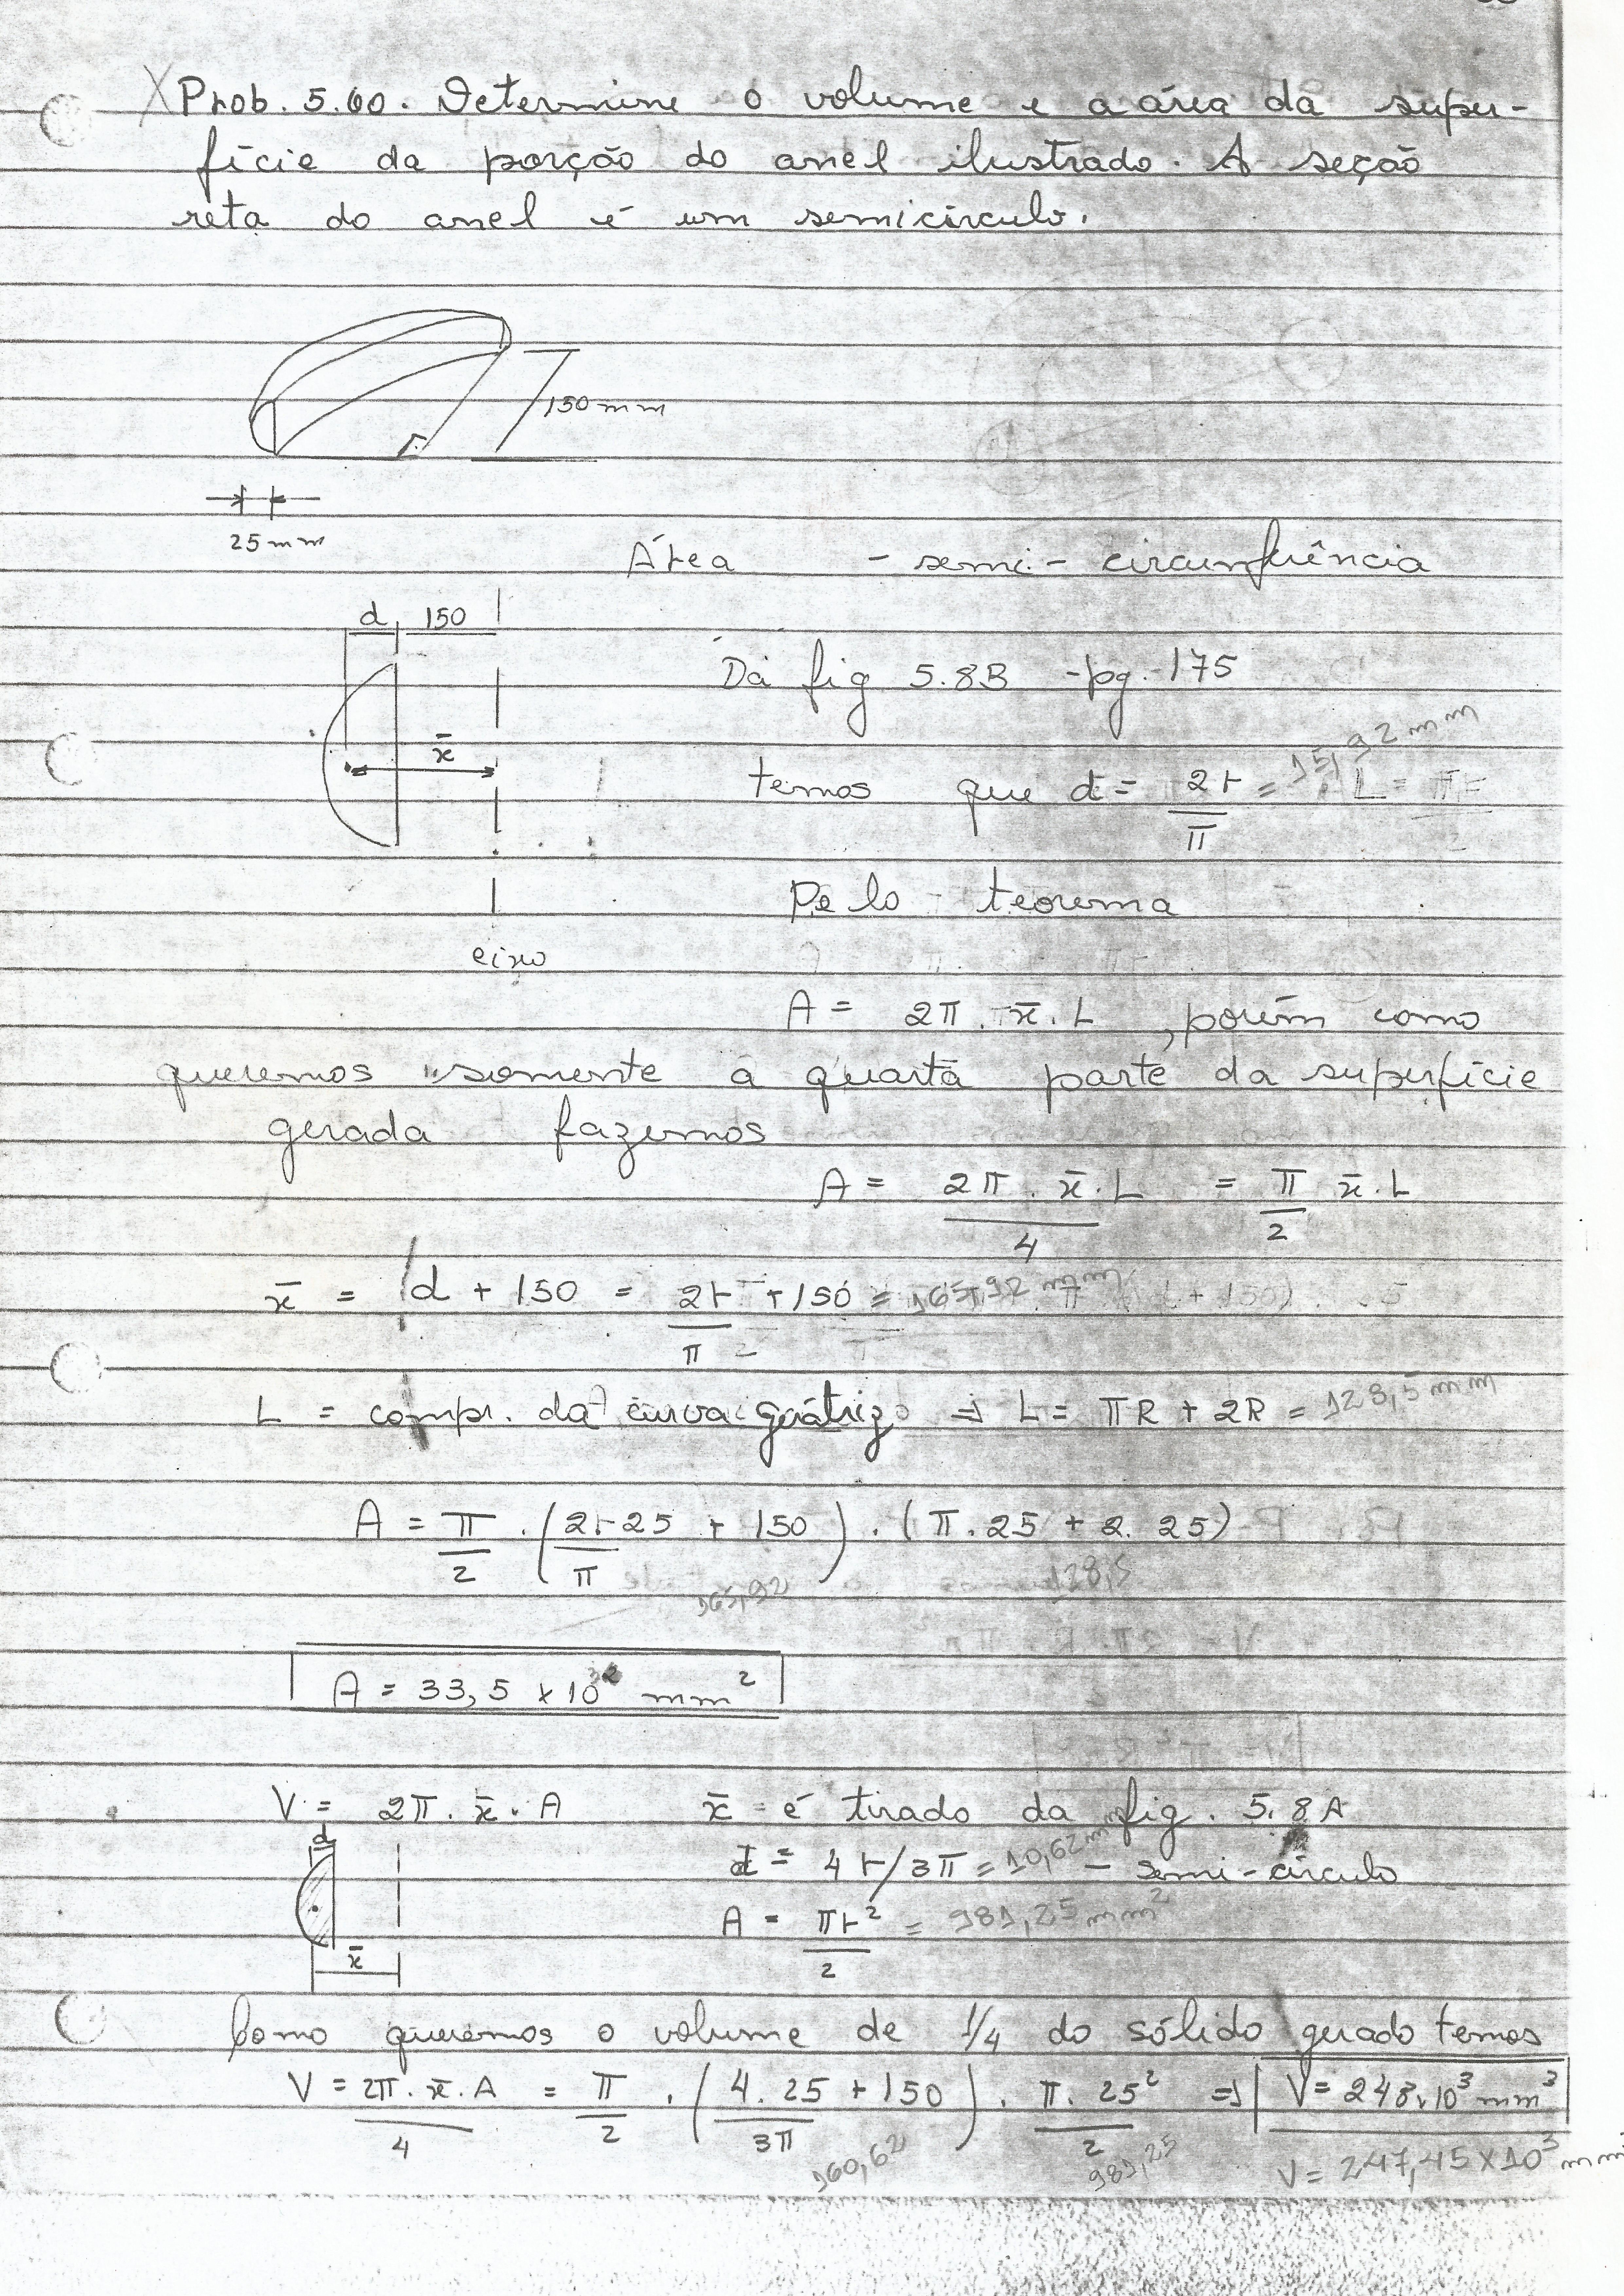 Prob. 5.60. Determine o volume e a área da super-
fície da porção do anel ilustrado. A seção
reta do anel é um semicírculo.
150 mm
25 mm
Área - semi-circunferência
d 150
Da fig 5.8B - pg. 175
x̄
temos que d = 2r/π = 15,92 mm
Pelo teorema
eixo
A = 2π. x̄. L , porém como
queremos somente a quarta parte da superfície
gerada fazemos
A = 2π. x̄. L/4 = π/2 x̄. L
x̄ = d + 150 = 2r/π + 150 = 165,92 mm
L = compr. da curva gerátriz ⇒ L = πR + 2R = 128,5 mm
A = π/2 . (2·25/π + 150) . (π. 25 + 2. 25)
165,92 128,5
A = 33,5 x 10³ mm²
V = 2π. x̄. A x̄ - é tirado da fig. 5.8A
d
d = 4r/3π = 10,62 mm - semi-círculo
A = πr²/2 = 981,25 mm²
x̄
Como queremos o volume de 1/4 do sólido gerado temos
V = 2π. x̄. A/4 = π/2 . (4. 25/3π + 150) . π. 25²/2 ⇒ V = 248x10³ mm³
160,62 981,25 V = 247,45 x 10³ mm³